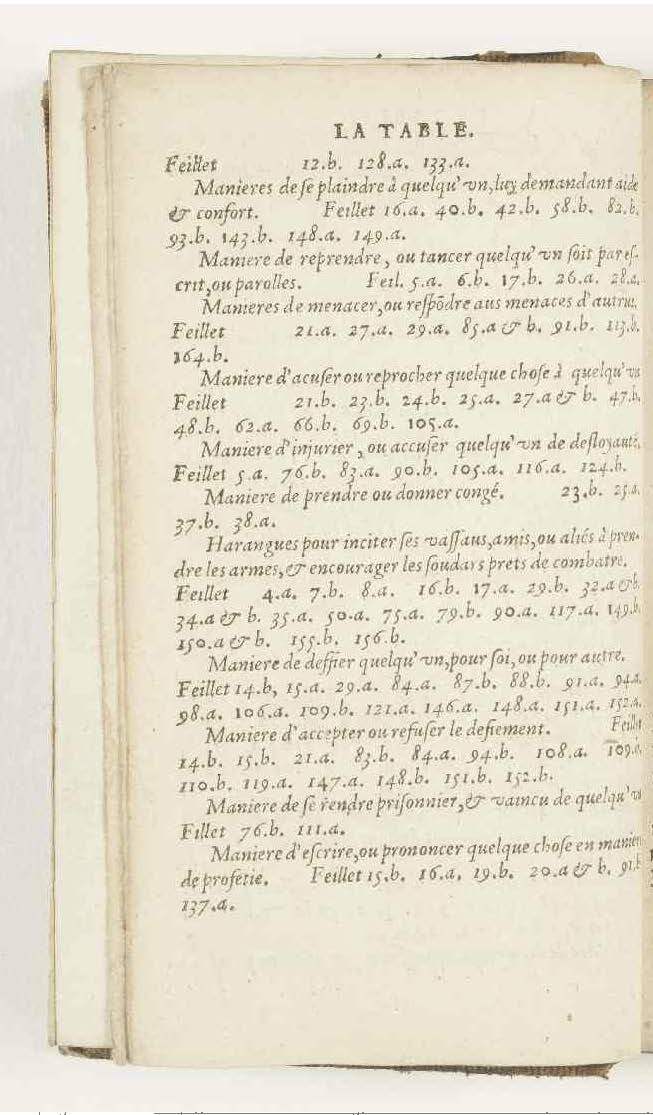 LA TABLE.
Feillet 12.b. 128.a. 133.a.
Manieres de se plaindre à quelqu'vn, luy demandant aide
& confort. Feillet 16.a. 40.b. 42.b. 58.b. 82.b.
93.b. 143.b. 148.a. 149.a.
Maniere de reprendre, ou tancer quelqu'vn soit par es-
crit, ou parolles. Feil. 5.a. 6.b. 17.b. 26.a. 28.a.
Manieres de menacer, ou respõdre aus menaces d'autrui.
Feillet 21.a. 27.a. 29.a. 85.a & b. 91.b. 113.b.
164.b.
Maniere d'acuser ou reprocher quelque chose à quelqu'vn
Feillet 21.b. 23.b. 24.b. 25.a. 27.a & b. 47.b.
48.b. 62.a. 66.b. 69.b. 105.a.
Maniere d'injurier, ou accuser quelqu'vn de desloyauté.
Feillet 5.a. 76.b. 83.a. 90.b. 105.a. 116.a. 124.b.
Maniere de prendre ou donner congé. 23.b. 25.a.
37.b. 38.a.
Harangues pour inciter ses vassaus, amis, ou aliés à pren-
dre les armes, & encourager les soudars prets de combatre.
Feillet 4.a. 7.b. 8.a. 16.b. 17.a. 29.b. 32.a & b.
34.a & b. 35.a. 50.a. 75.a. 79.b. 90.a. 117.a. 149.b.
150.a & b. 155.b. 156.b.
Maniere de deffier quelqu'vn, pour soi, ou pour autre.
Feillet 14.b, 15.a. 29.a. 84.a. 87.b. 88.b. 91.a. 94.a.
98.a. 106.a. 109.b. 121.a. 146.a. 148.a. 151.a. 152.a.
Maniere d'accepter ou refuser le defiement. Feillet
14.b. 15.b. 21.a. 83.b. 84.a. 94.b. 108.a. 109.a.
110.b. 119.a. 147.a. 148.b. 151.b. 152.b.
Maniere de se rendre prisonnier, & vaincu de quelqu'vn
Fillet 76.b. 111.a.
Maniere d'escrire, ou prononcer quelque chose en maniere
de profetie. Feillet 15.b. 16.a. 19.b. 20.a & b. 91.b
137.a.